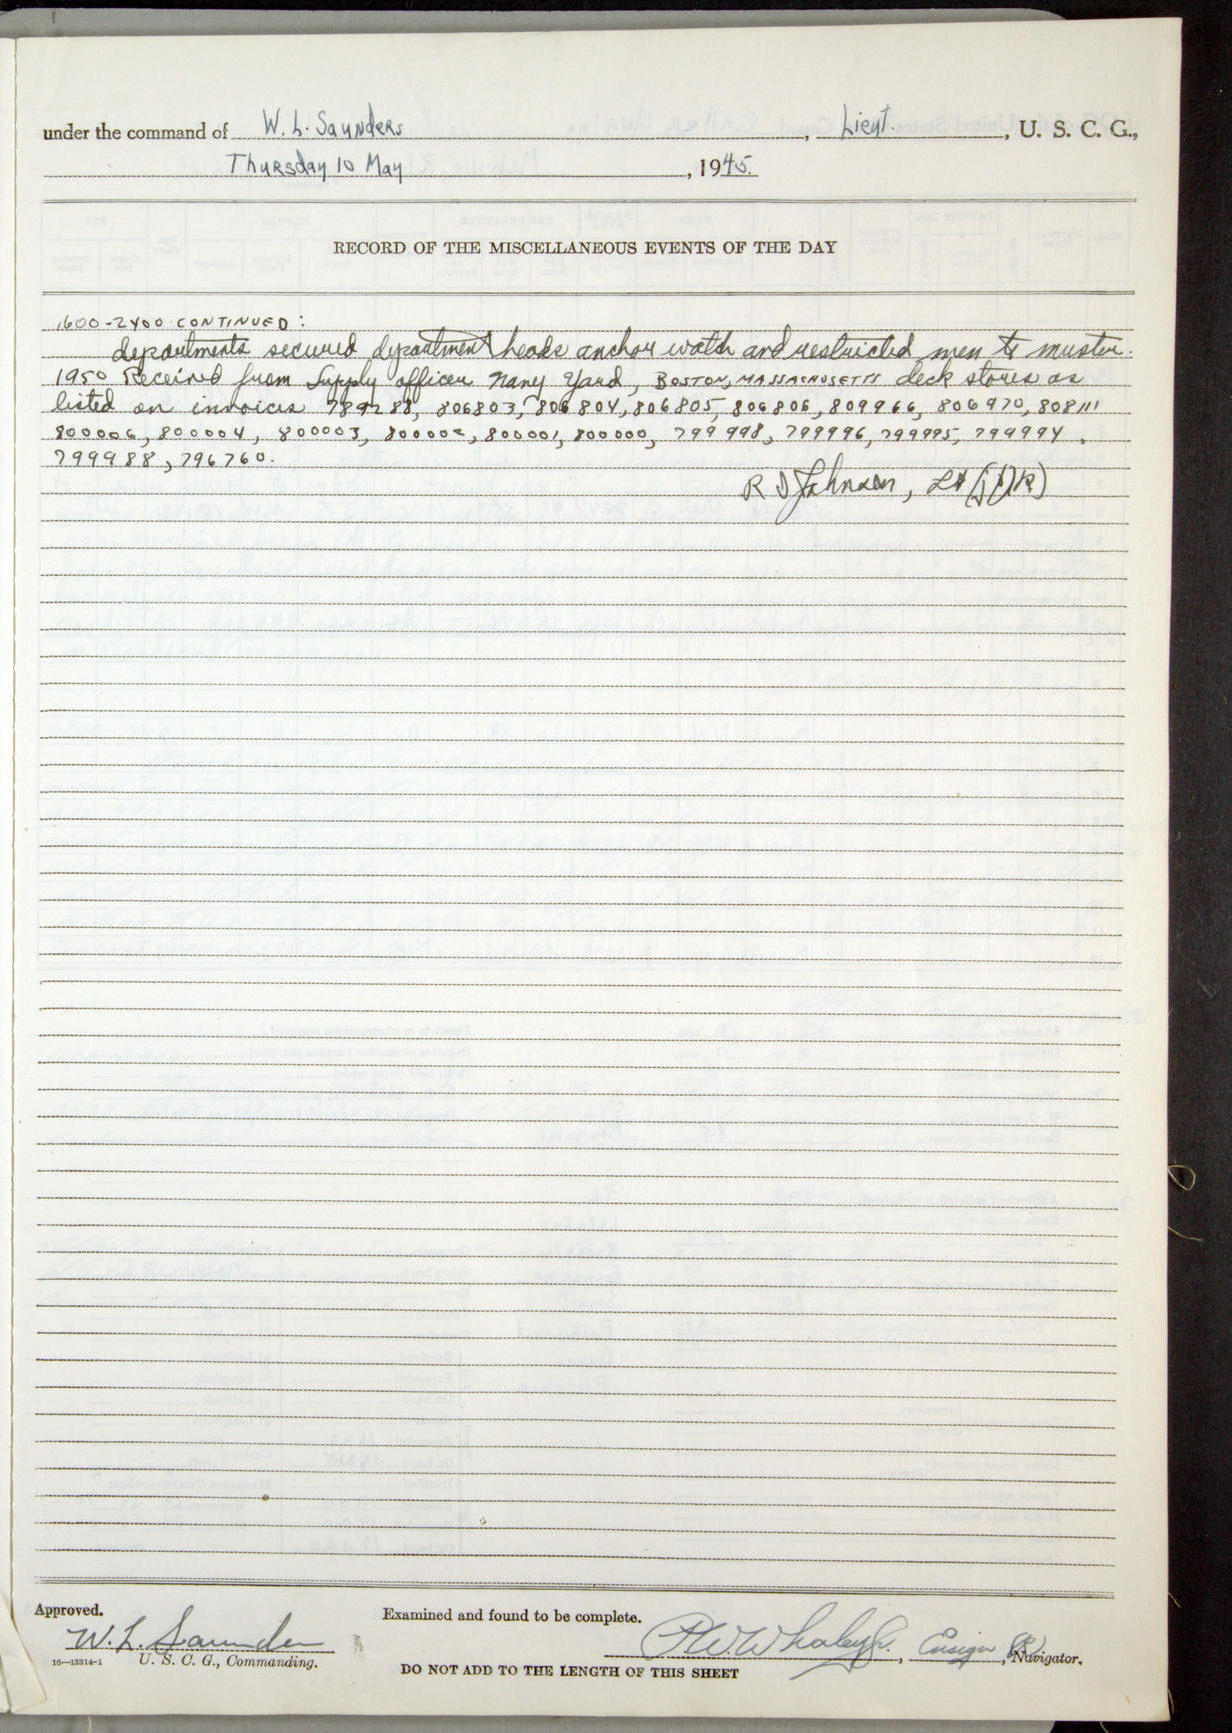 under the command of W. L. Saunders, Lieut., U. S. C. G.,
Thursday 10 May, 1945.
RECORD OF THE MISCELLANEOUS EVENTS OF THE DAY
1600-2400 CONTINUED:
departments secured department heads anchor watch and restricted men to muster.
1950 Received from Supply officer Navy Yard, BOSTON, MASSACHUSETTS deck stores as
listed on invoices 789288, 806803, 806804, 806805, 806806, 809966, 806970, 808111
800006, 800004, 800003, 800002, 800001, 800000, 799998, 799996, 799995, 799994,
799988, 796760.
R D Johnson, Lt (jg)(R)
Approved.
Examined and found to be complete.
W. L. Saunders
P.W. Whaley Jr., Ensign (R), Navigator.
16—13314-1 U. S. C. G., Commanding.
DO NOT ADD TO THE LENGTH OF THIS SHEET